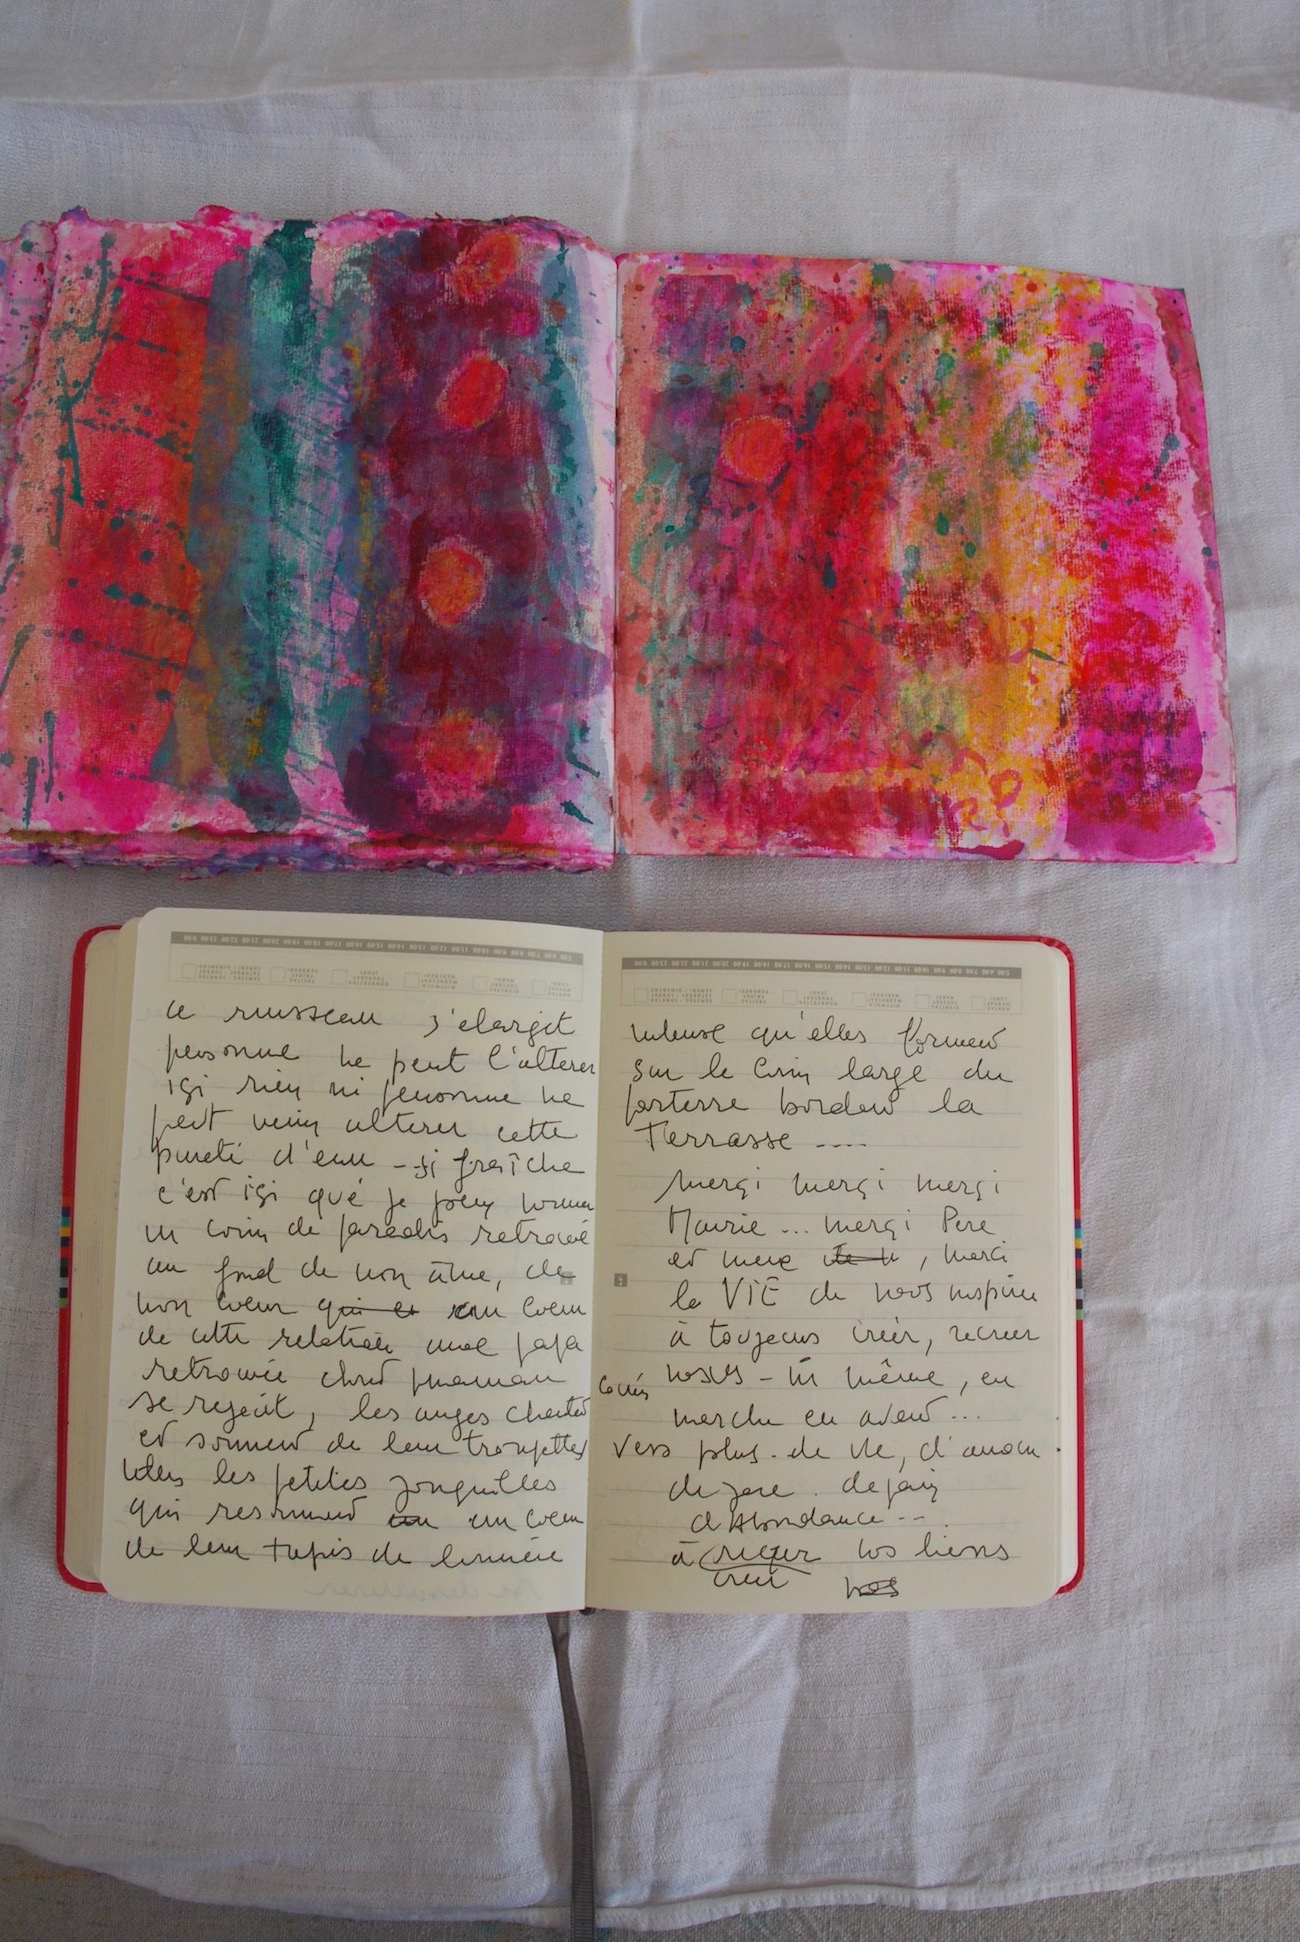 ce ruisseau s'élargit
personne ne peut l'altérer
ici rien ni personne ne
peut venir altérer cette
pureté d'eau - si fraîche
c'est ici que je peux
un coin de paradis retrouvé
au fond de mon âme, de
mon coeur qui et au coeur
de cette relation avec papa
retrouvée dont maman
se réjouit, les anges chantent
et sonnent de leur trompettes
les petites jonquilles
qui résonnent au coeur
de leur tapis de lumière
intense qu'elles forment
sur le coin large du
parterre bordant la
Terrasse ....
merci merci merci
... merci Père
et mère, merci
la VIE de nous inspirer
à toujours créer, recréer
nous - même, en
marche en avant ...
vers plus de vie, d'amour
de joie. de paix
d'Abondance --.
à créer nos liens
nos